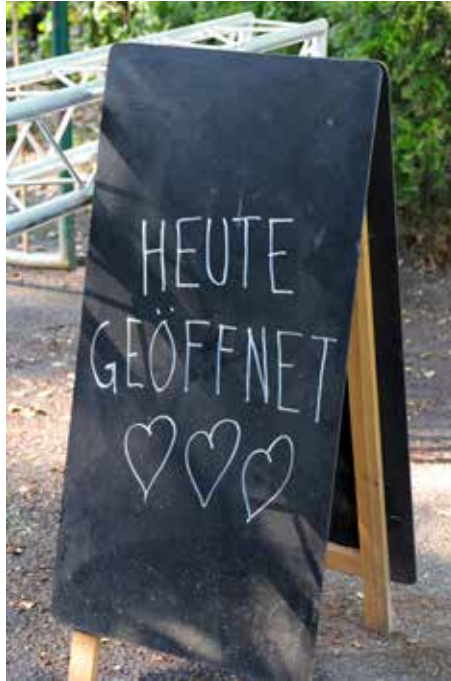 HEUTE
GEÖFFNET